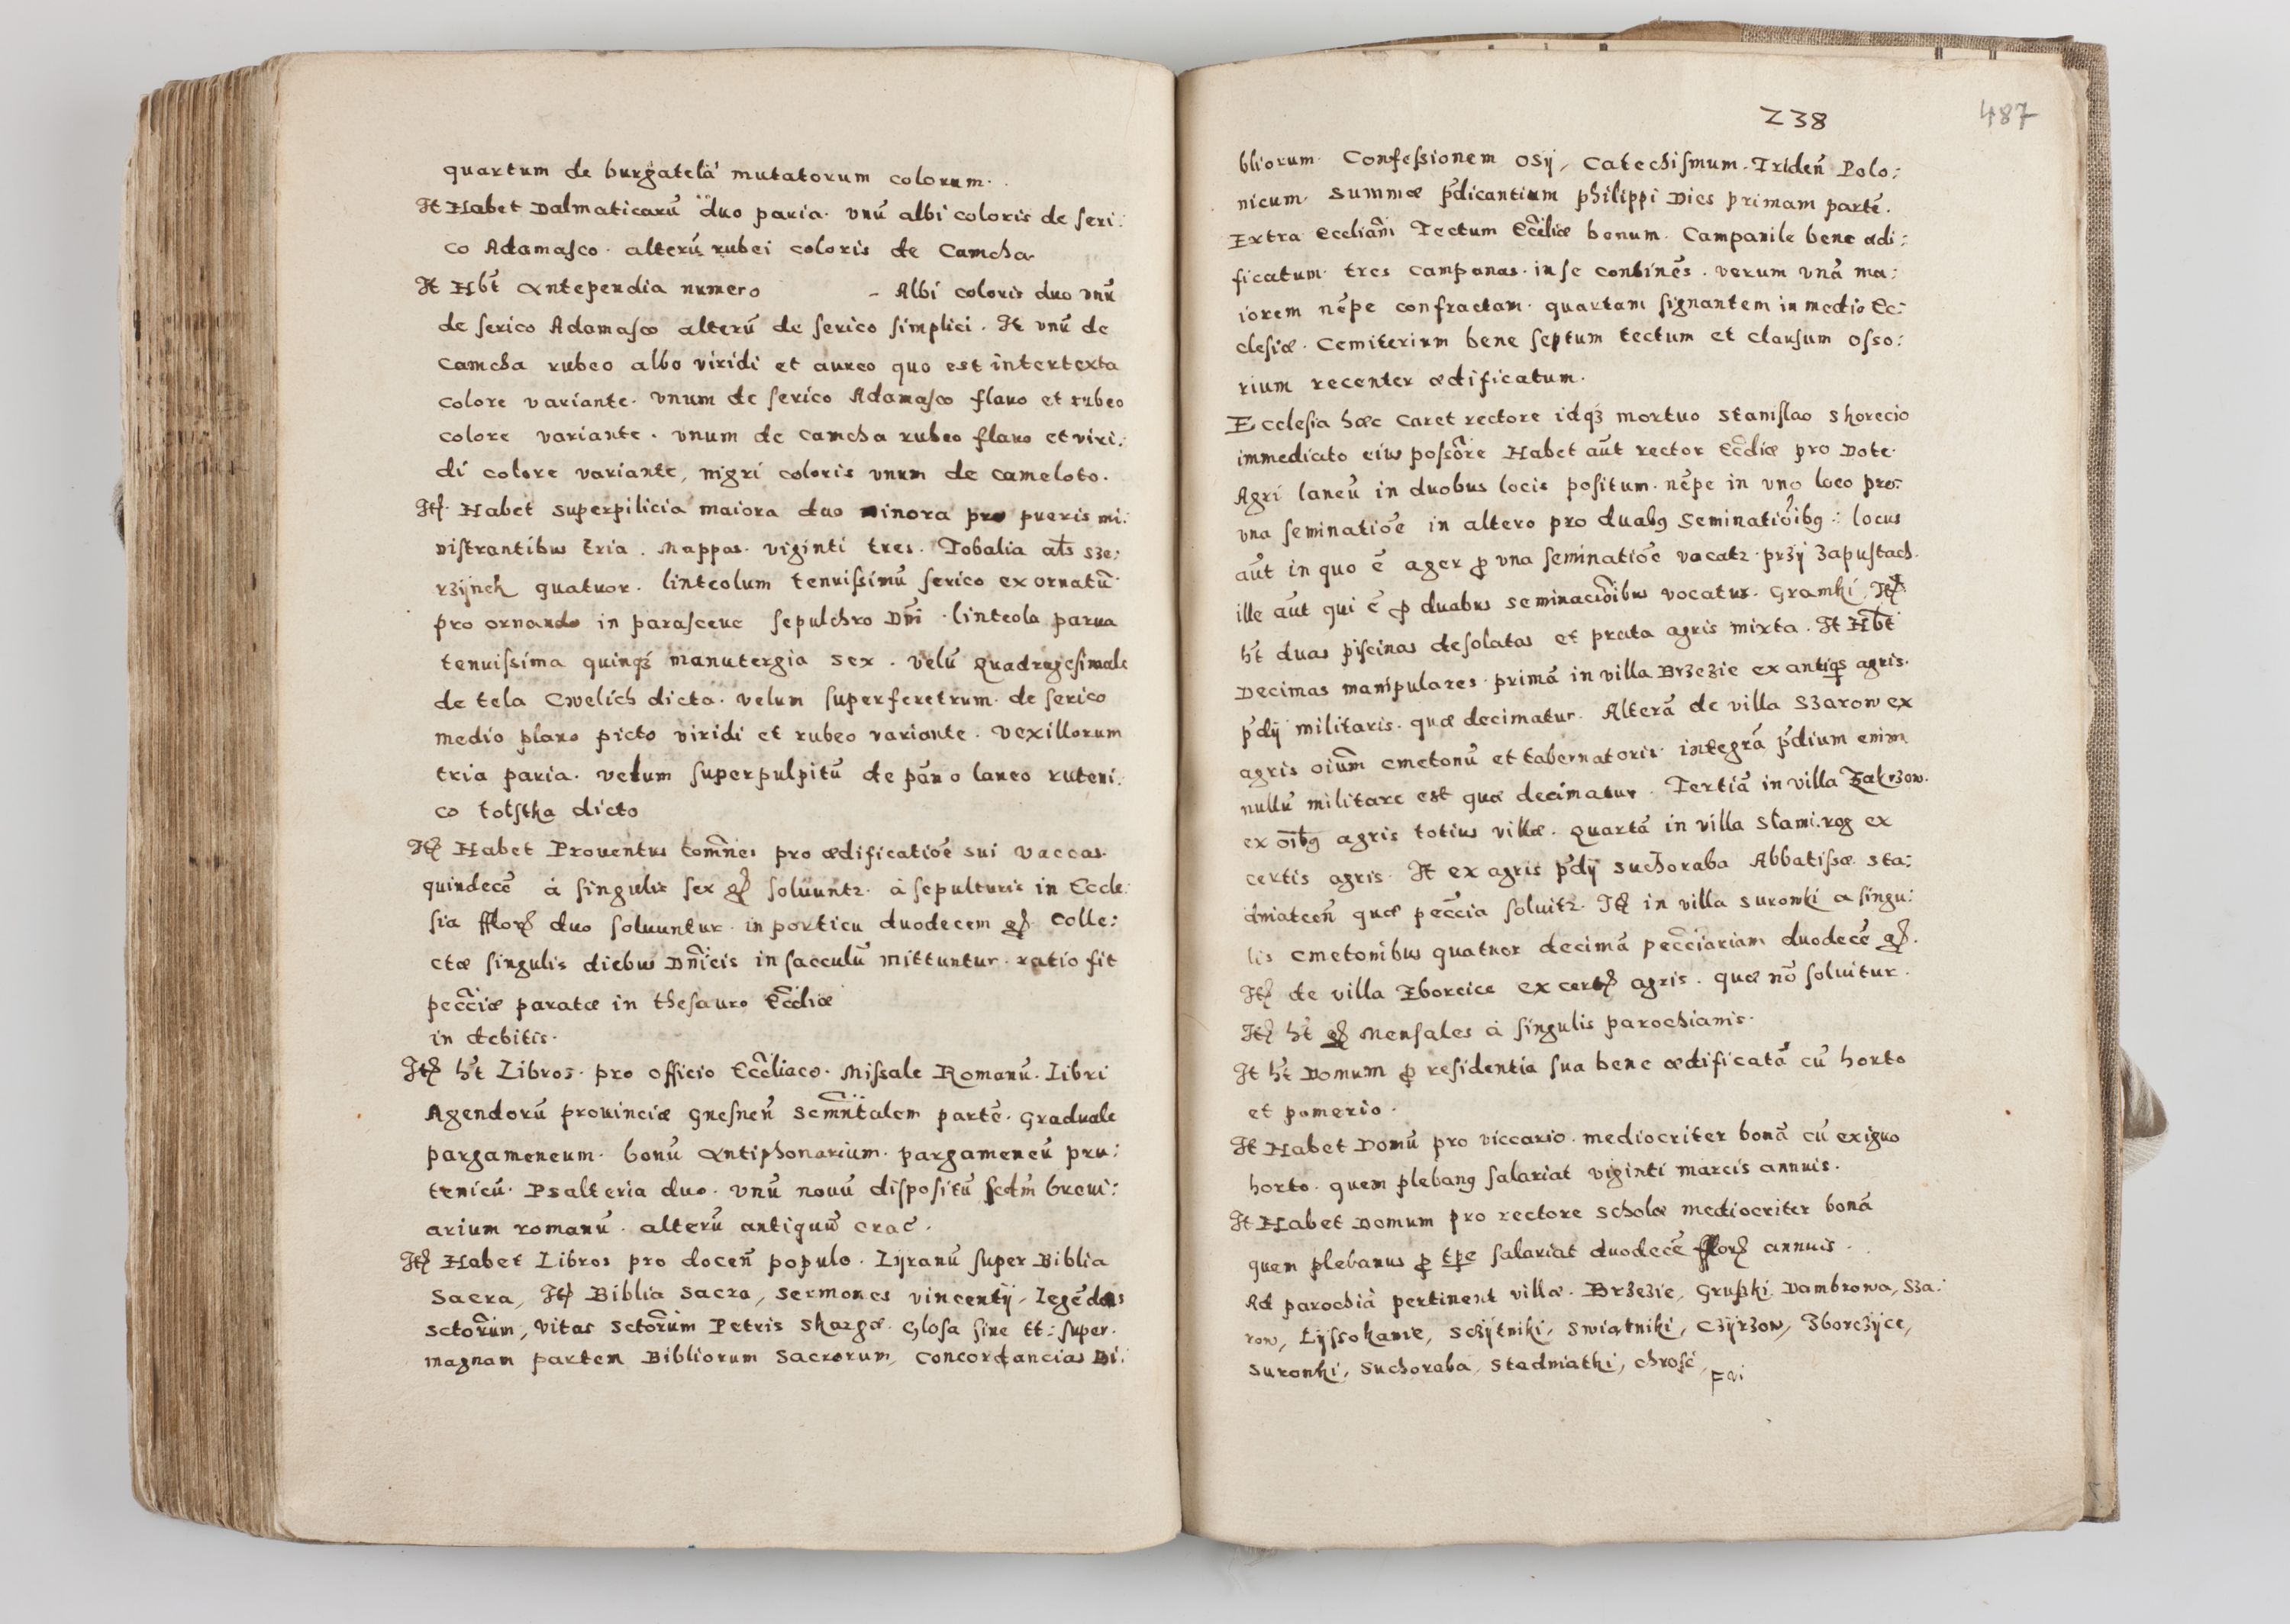 quartum de burgatela mutatorum colorum.
It Habet Dalmaticarū duo paria. vnū albi coloris de seri:
co Adamasco. alterū rubei coloris de Camcha.
It Hbt̄ Antependia numero - Albi coloris duo vnū
de serico Adamasco alterū de serico simplici. It vnū de
camcha rubeo albo viridi et aureo quo est intertexta
colore variante. vnum de serico Adamasco flauo et rubeo
colore variante. vnum de camcha rubeo flauo et viri:
di colore variante, nigri coloris vnum de cameloto.
Itꝭ Habet superpilicia maiora duo minora pro pueris mi:
nistrantibus tria. Mappas. viginti tres. Tobalia als̄ sze:
rzijnek quatuor. linteolum tenuissimū serico exornatū
pro ornando in parasceue sepulchro Dn̄i. linteola parua
tenuissima quinqꝫ manutergia sex. velū Quadragesimale
de tela Cwelich dicta. velum superferetrum. de serico
medio plano picto viridi et rubeo variante. Vexillorum
tria paria. velum superpulpitū de pāno laneo ruteni:
co tolstka dicto
Itꝭ Habet Prouentus to̅m̅nes pro ædificatiōe sui vaccas.
quindecē à singulis sex gꝭ soluuntꝛ. à sepulturis in Eccle:
sia fflorꝭ duo soluuntur. in porticu duodecem gꝭ. Colle:
ctæ singulis diebus Dn̄icis in sacculū mittuntur. ratio fit
pecc̄iæ paratæ in thesauro Eccl̄iæ
in debitis.
Itꝭ ht̄ Libros. pro officio Eccl̄iaco. Missale Romanū. libri
Agendorū prouinciæ Gnesnen̄ Semn̄talem partē. Graduale
pargameneum. bonū Antiphonarium. pargameneū pru:
tenicū. Psalteria duo. vnū nouū dispositū scdm̄ breui:
arium romanū. alterū antiquū crac̄.
Itꝭ Habet Libros pro docen̄ populo. Lyranū super Biblia
Sacra, Itꝭ Biblia Sacra, Sermones vincentij, legēdas
Sctor̄um, vitas Sctor̄um Petris Skargæ. Glosa siue tt: super.
magnam partem Bibliorum Sacrorum, Concordancias Bi:
238
487
bliorum. Confessionem Osij, Catechismum. Triden̄ Polo:
nicum. Summæ p̄dicantium philippi Dies primam partē.
Extra eccliam̄ Tectum Eccl̄iæ bonum. Campanile bene ædi:
ficatum. tres campanas. in se continēs. verum vnā ma:
iorem nēpe confractam. quartam signantem in medio Ec:
clesiæ. Cemiterium bene septum tectum et clausum osso:
rium recenter ædificatum.
Ecclesia hæc caret rectore idqꝫ mortuo Stanislao Skorecio
immediato eius possōre Habet aūt rector Eccl̄iæ pro Dote.
Agri laneū in duobus locis positum. nēpe in vno loco pro:
vna seminatiōe in altero pro duabꝰ Seminatiōibꝰ: locus
aūt in quo ē ager ꝓ vna seminatiōe vocatꝛ. przij zapustach.
ille aūt qui ē ꝓ duabus seminaciōibus vocatur. Gramki, Itꝭ
ht̄ duas piscinas desolatas et prata agris mixta. It Hbt̄
Decimas manipulares. primā in villa Brzezie ex antiqs agris.
p̄dij militaris. quæ decimatur. Alterā de villa Szarow ex
agris oium̄ cmetonū et tabernatoris. integrā p̄dium enim
nullū militare est quæ decimatur. Tertiā in villa Zakrzow.
ex oībꝰ agris totius villæ. Quartā in villa Stami.rog ex
certis agris. It ex agris p̄dij suchoraba Abbatissæ. Sta:
dniatcen̄ quæ pecc̄ia soluitꝛ. Itꝭ in villa surowki a singu:
lis cmetonibus quatuor decimā pecc̄iariam duodecē gꝭ.
Itꝭ de villa Zborcice ex certꝭ agris. quæ nō soluitur.
Itꝭ ht̄ gꝭ Mensales à singulis parochianis.
It ht̄ Domum ꝓ residentia sua bene ædificatā cū horto
et pomerio.
It Habet Domū pro viccario. mediocriter bonā cū exiguo
horto. quem plebanꝰ salariat viginti marcis annuis.
It Habet Domum pro rectore scholæ mediocriter bonā
quem plebanus ꝓ tp̄e salariat duodecē fflorꝭ annuis.
Ad parochiā pertinent villæ. Brzezie, Gruszki. Dambrowa, Sza:
row, Lijssokanie, Sczijtniki, Swiątniki, Czijrzow, Zborczijce,
Surowki, Suchoraba, Stadniatki, Chrosć,